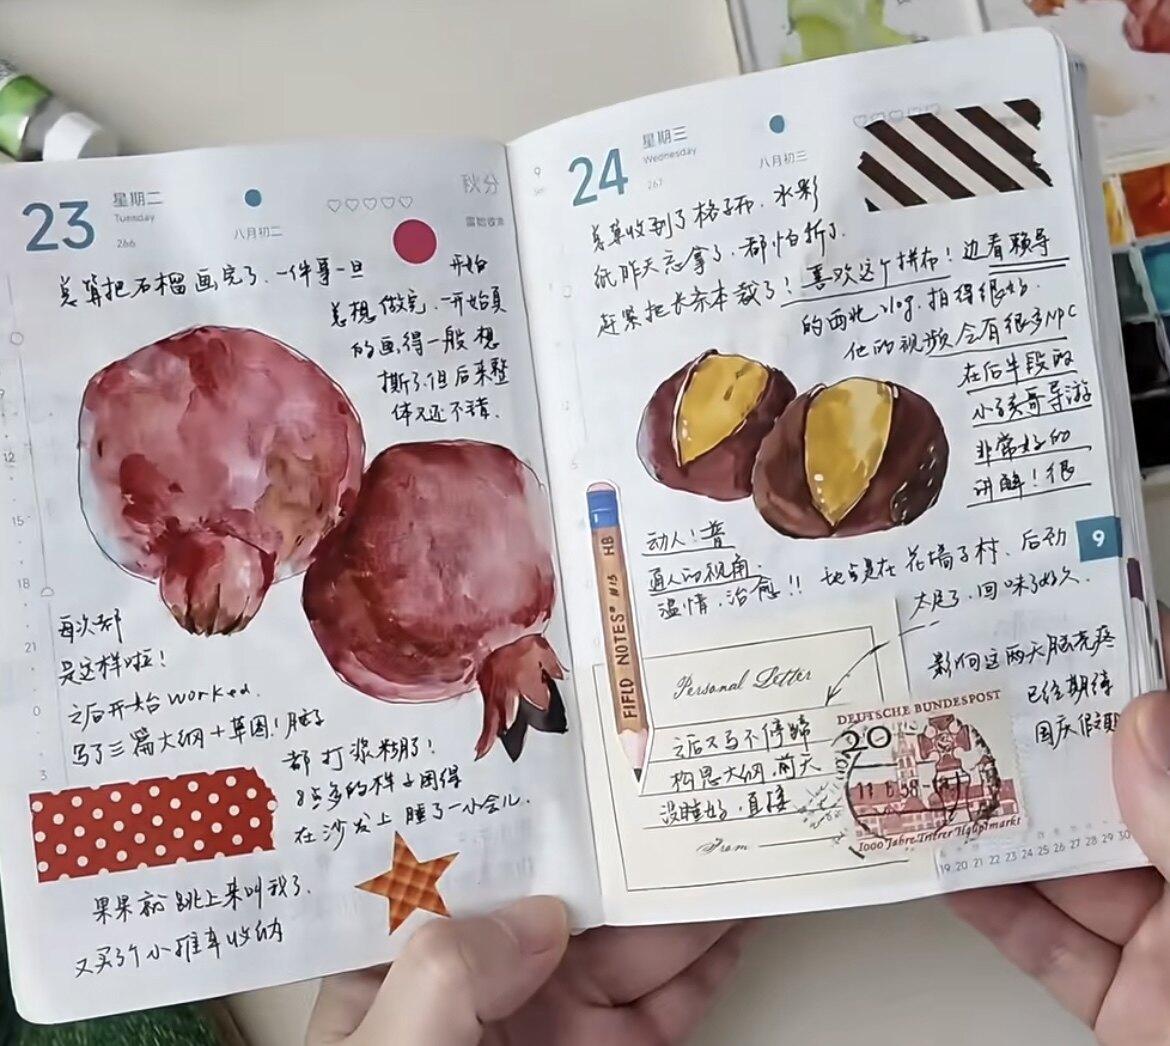 23
星期二
Tuesday
266
八月初二
秋分
总算把石榴画完了、一件事一旦
开始
总想做完、一开始真
的画得一般想
撕了、但后来整
体又还不错、
每次都
是这样啦！
之后开始 worked、
写了三篇大纲+草图！脑子
都打浆糊了！
8点多的样子困得
在沙发上睡了一小会儿、
果果就跳上来叫我了、
又买了个小推车收纳
12
15
18
21
0
3
9
24
星期三
Wednesday
267
八月初三
总算收到了格子布、水彩
纸昨天忘拿了、都怕折了、
赶紧把长条本裁了！喜欢这个拼布！边看赖导
的西北vlog、拍得很好、
他的视频会有很多NPC
在后半段的
小孩哥导游
非常好的
讲解！很
动人！普
通人的视角、
温情、治愈！！
村、后劲
太足了、回味了好久、
影响这两天脑壳疼
已经期待
国庆假期
9
FIELD NOTES® Nº15 HB
Personal Letter
之后又马不停蹄
构思大纲、前天
没睡好、直接
From
DEUTSCHE BUNDESPOST
20
1000 Jahre Trierer Hauptmarkt
19 20 21 22 23 24 25 26 27 28 29 30